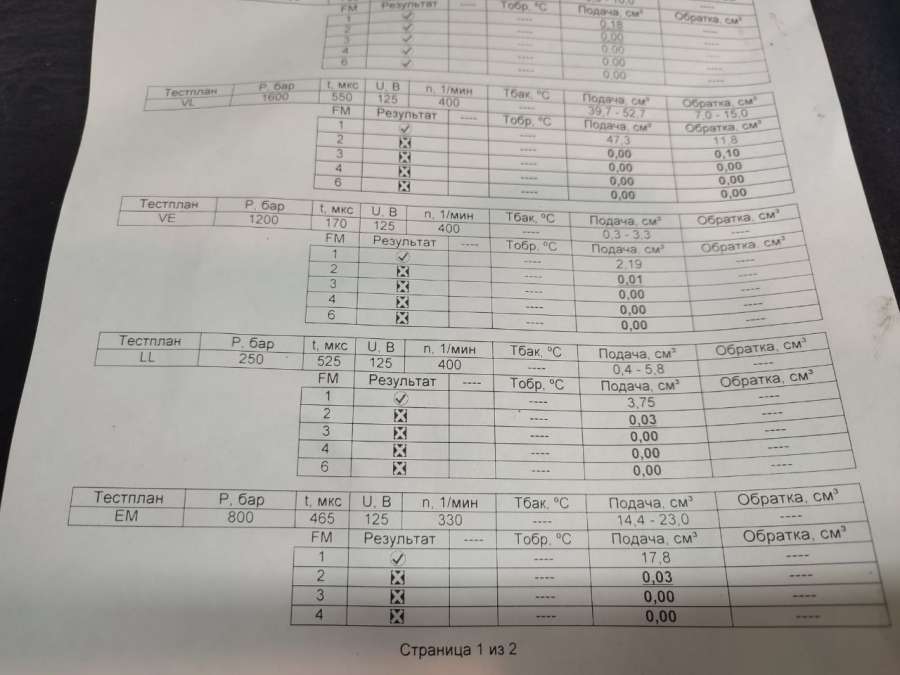 FM Результат ---- Тобр, ºC Подача, см³ Обратка, см³
1 ---- 0,18 ----
2 ---- 0,00 ----
3 ---- 0,00 ----
4 ---- 0,00 ----
6 ---- 0,00 ----
Тестплан P, бар t, мкс U, В n, 1/мин Тбак, ºC Подача, см³ Обратка, см³
VL 1600 550 125 400 ---- 39,7 - 52,7 7,0 - 15,0
FM Результат ---- Тобр, ºC Подача, см³ Обратка, см³
1 ---- 47,3 11,8
2 ---- 0,00 0,10
3 ---- 0,00 0,00
4 ---- 0,00 0,00
6 ---- 0,00 0,00
Тестплан P, бар t, мкс U, В n, 1/мин Тбак, ºC Подача, см³ Обратка, см³
VE 1200 170 125 400 ---- 0,3 - 3,3 ----
FM Результат ---- Тобр, ºC Подача, см³ Обратка, см³
1 ---- 2,19 ----
2 ---- 0,01 ----
3 ---- 0,00 ----
4 ---- 0,00 ----
6 ---- 0,00 ----
Тестплан P, бар t, мкс U, В n, 1/мин Тбак, ºC Подача, см³ Обратка, см³
LL 250 525 125 400 ---- 0,4 - 5,8 ----
FM Результат ---- Тобр, ºC Подача, см³ Обратка, см³
1 ---- 3,75 ----
2 ---- 0,03 ----
3 ---- 0,00 ----
4 ---- 0,00 ----
6 ---- 0,00 ----
Тестплан P, бар t, мкс U, В n, 1/мин Тбак, ºC Подача, см³ Обратка, см³
EM 800 465 125 330 ---- 14,4 - 23,0 ----
FM Результат ---- Тобр, ºC Подача, см³ Обратка, см³
1 ---- 17,8 ----
2 ---- 0,03 ----
3 ---- 0,00 ----
4 ---- 0,00 ----
Страница 1 из 2